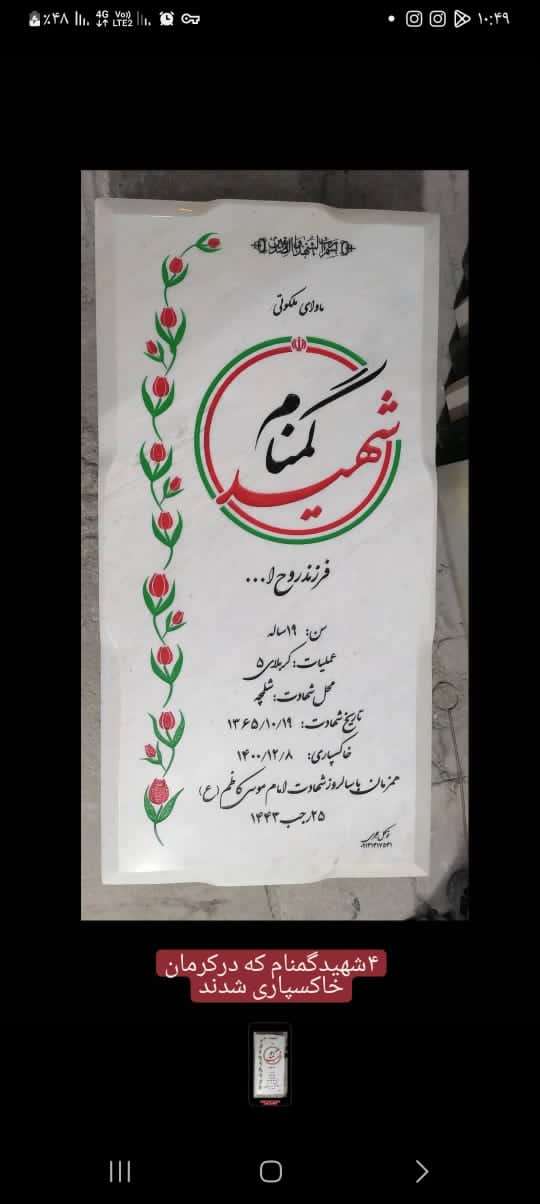 ٪۴۸ 4G Vo)) LTE2 ۱۰:۴۹
ماوای ملکوتی
شهید گمنام
فرزند روح ا...
سن: ۱۹ساله
عملیات: کربلای ۵
محل شهادت: شلمچه
تاریخ شهادت: ۱۳۶۵/۱۰/۱۹
خاکسپاری: ۱۴۰۰/۱۲/۸
همزمان با سالروز شهادت امام موسی کاظم (ع)
۲۵رجب ۱۴۴۳
۴شهیدگمنام که درکرمان
خاکسپاری شدند